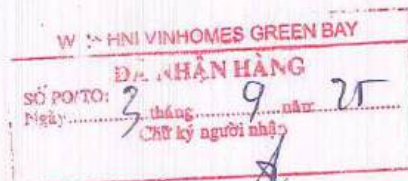 HNI VINHOMES GREEN BAY
ĐÃ NHẬN HÀNG
SỐ PO/TO:
Ngày 3 tháng 9 năm 25
Chữ ký người nhận